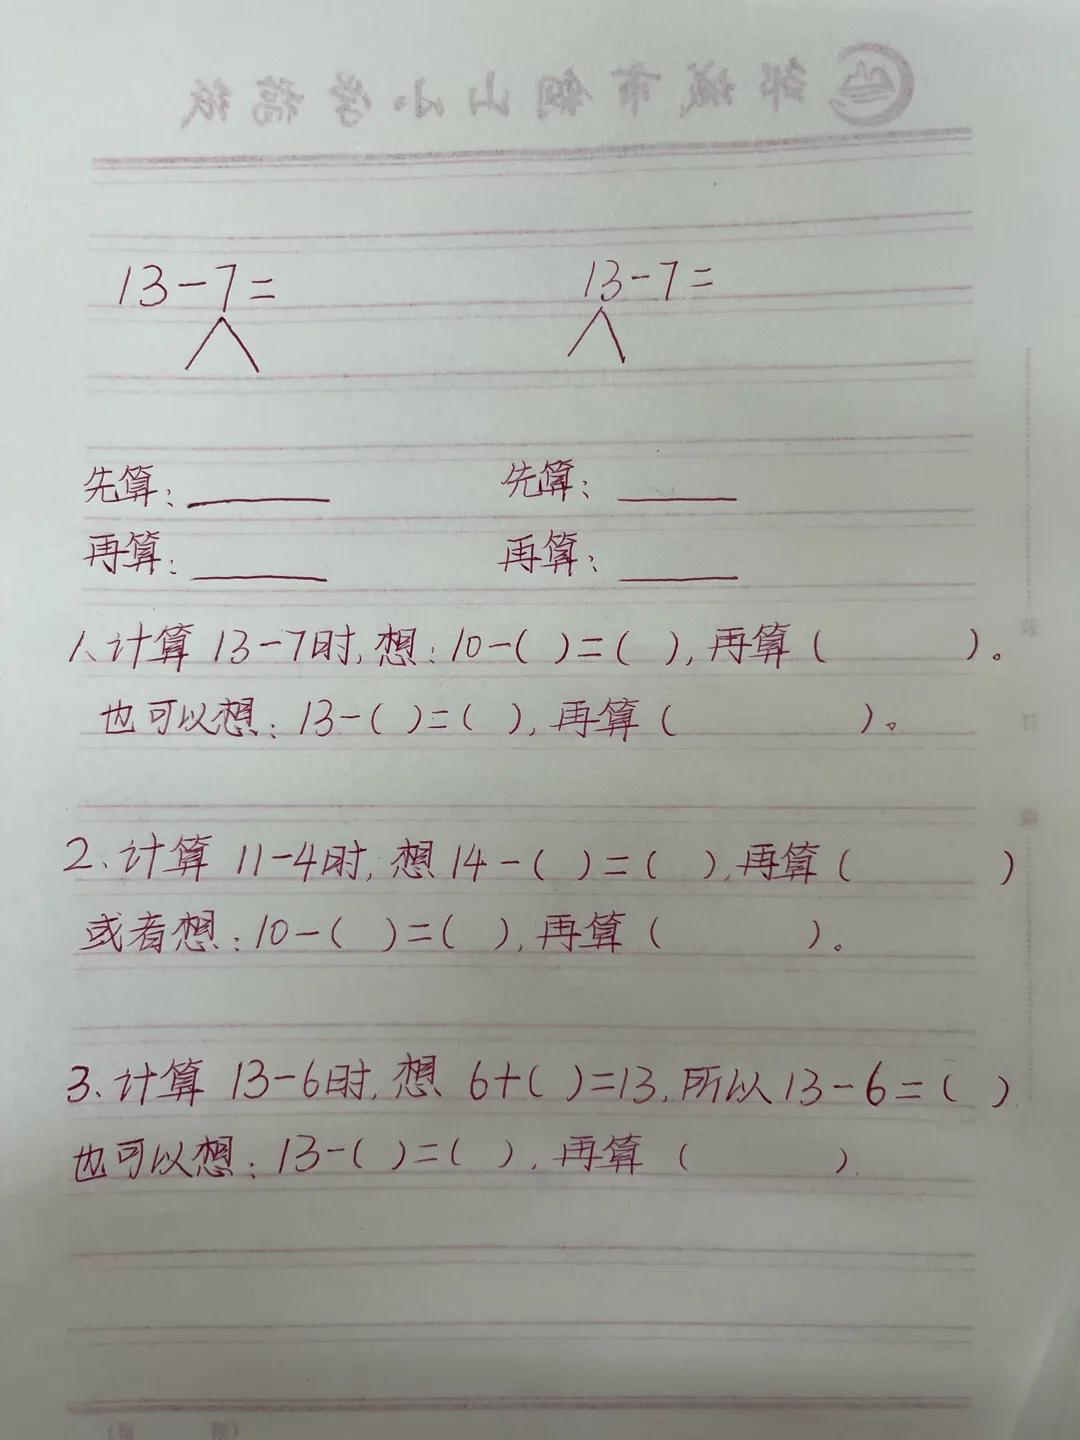 邹城市钢山小学稿纸
13-7=    13-7=
先算：______    先算：______
再算：______    再算：______
1、计算 13-7时,想：10-( )=( ),再算( )。
也可以想：13-( )=( ),再算( )。
2、计算 11-4时,想14-( )=( ),再算( )
或者想：10-( )=( ),再算( )。
3、计算 13-6时,想 6+( )=13,所以13-6=( )
也可以想：13-( )=( ),再算( ).
装
订